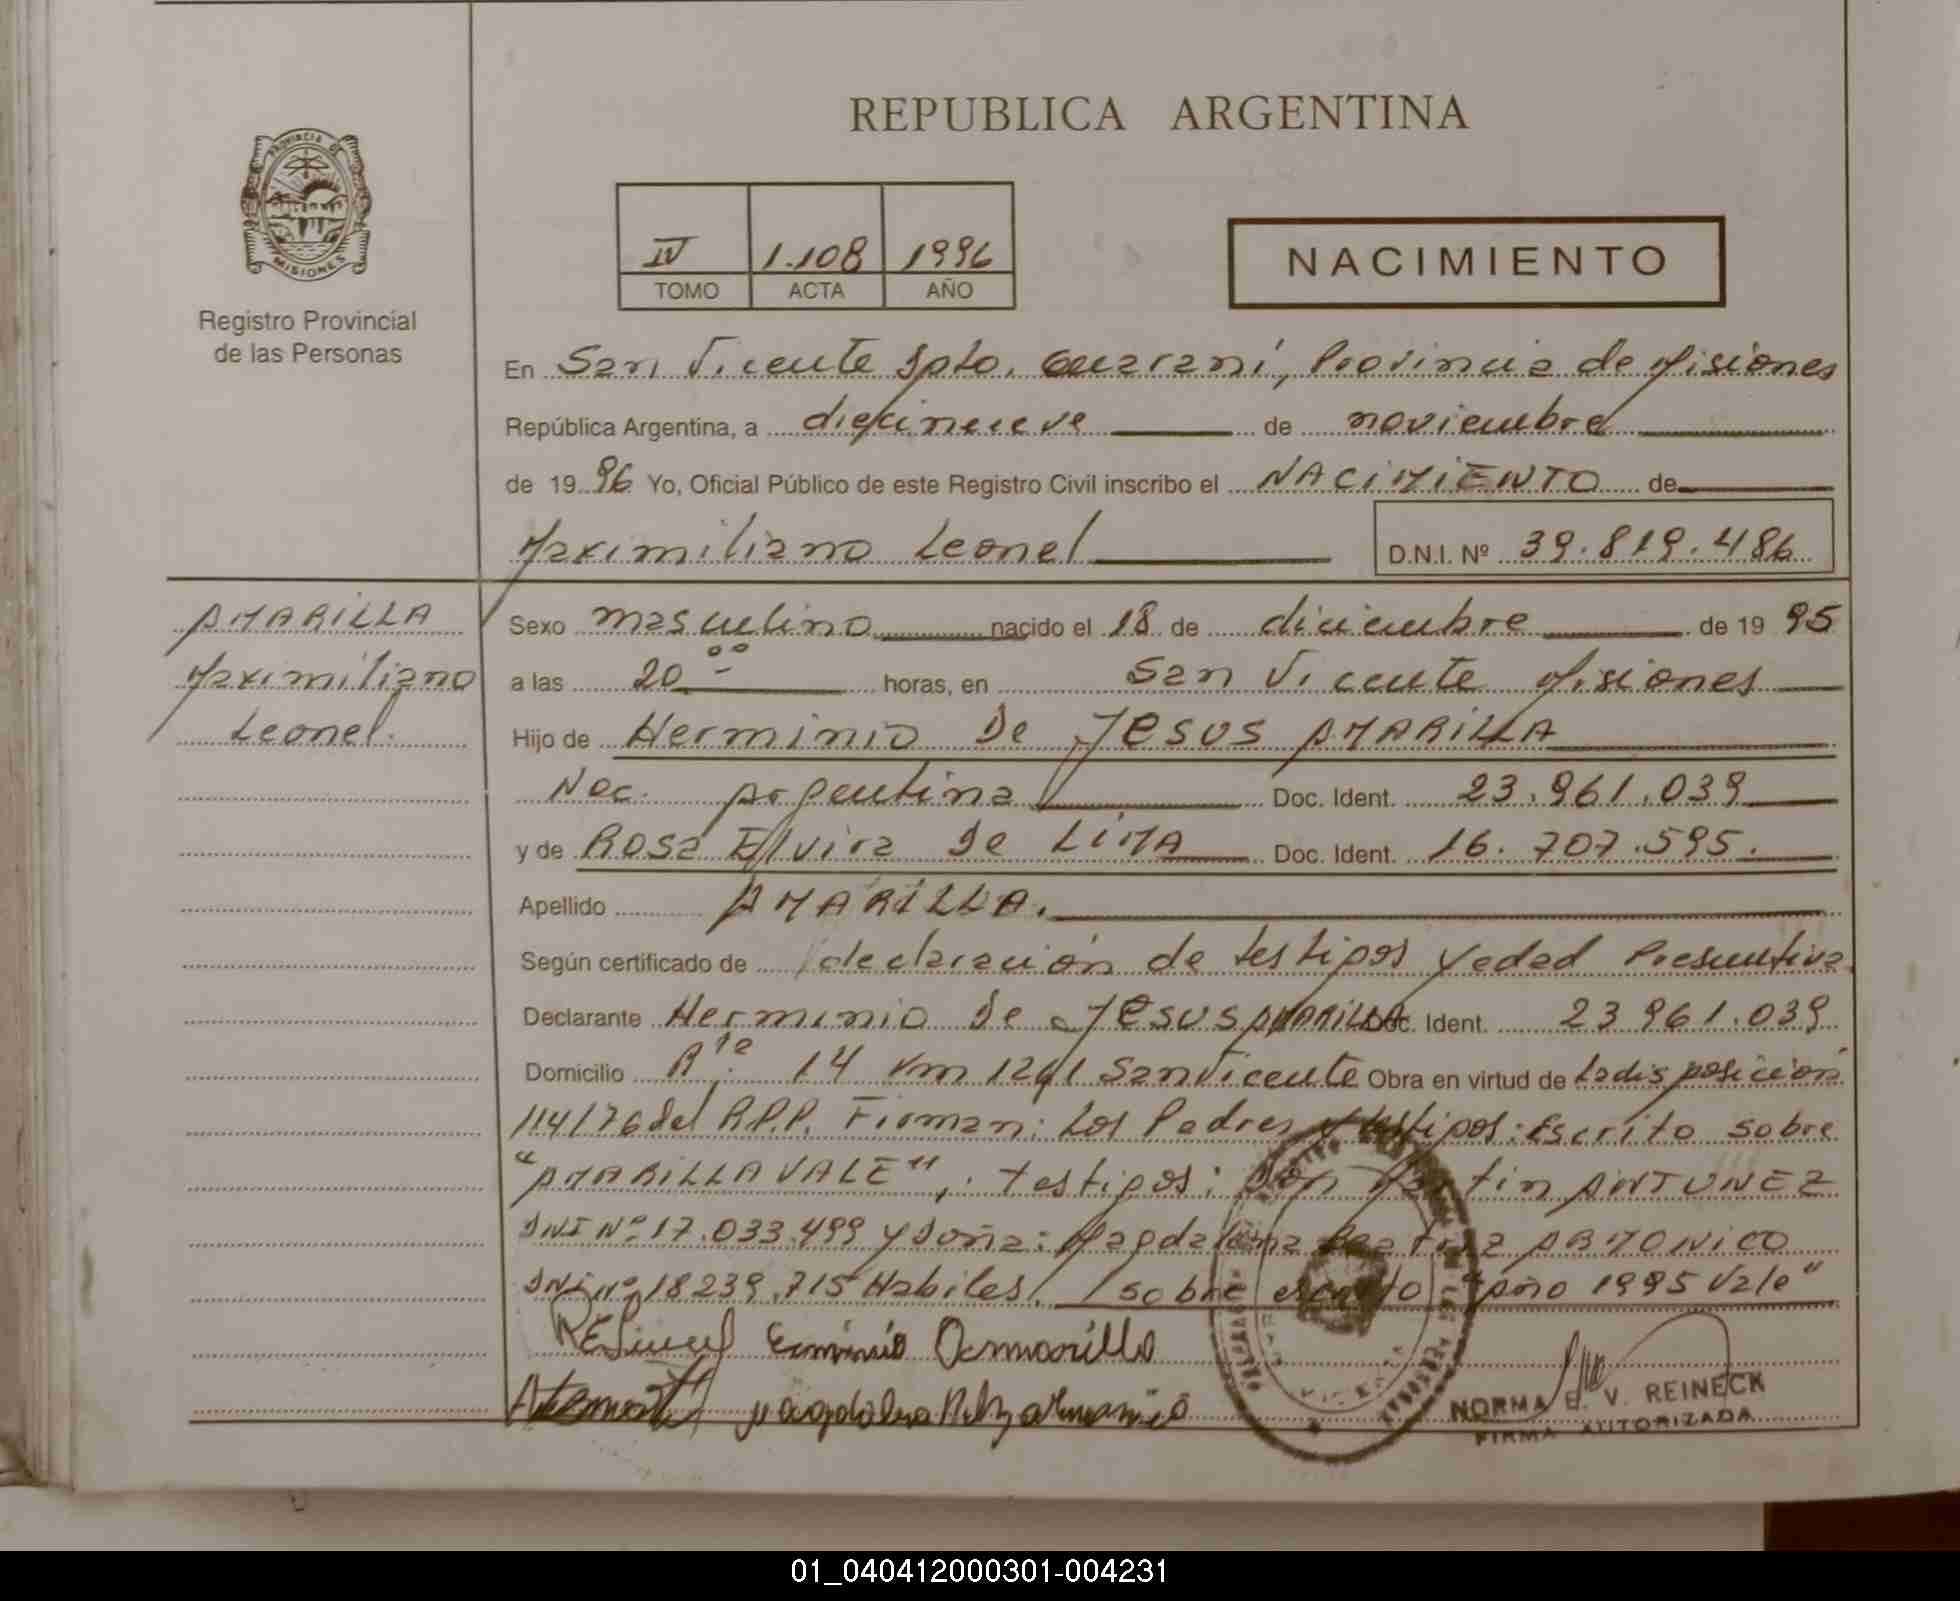 REPUBLICA ARGENTINA
PROVINCIA DE
MISIONES
Registro Provincial
de las Personas
IV 1.108 1996
TOMO ACTA AÑO
NACIMIENTO
En San Vicente Dpto. Guaraní, Provincia de Misiones
República Argentina, a diecinueve de noviembre
de 1996 Yo, Oficial Público de este Registro Civil inscribo el NACIMIENTO de
Maximiliano Leonel D.N.I. Nº 39.819.486
AMARILLA
Maximiliano
Leonel.
Sexo masculino nacido el 18 de diciembre de 1995
a las 20 00 horas, en San Vicente Misiones
Hijo de Herminio De Jesus AMARILLA
Nac. Argentina Doc. Ident. 23.961.039
y de Rosa Elvira De LIMA Doc. Ident. 16.707.595.
Apellido AMARILLA.
Según certificado de declaración de testigos y edad Presuntiva
Declarante Herminio De Jesus AMARILLA Doc. Ident. 23961.039
Domicilio R 14 Km 1261 San Vicente Obra en virtud de La disposición
114/76 del R.P.P. Firman: Los Padres y testigos: Escrito sobre
"AMARILLA VALE", testigos: Don Martin ANTUNEZ
DNI Nº 17.033.499 y Doña: Magdalena Beatriz ARMONICO
DNI Nº 18239.715 Habiles. sobre escrito "año 1995 Vale"
NORMA E. V. REINECK
FIRMA AUTORIZADA
01_040412000301-004231